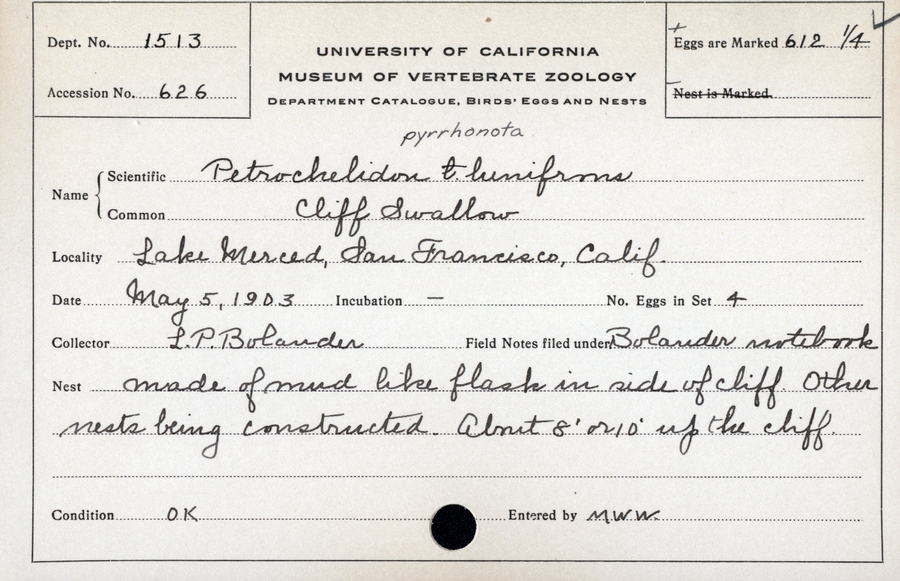 Dept. No. 1513
Accession No. 626
UNIVERSITY OF CALIFORNIA
MUSEUM OF VERTEBRATE ZOOLOGY
DEPARTMENT CATALOGUE, BIRDS' EGGS AND NESTS
Eggs are Marked 612 1/4
Nest is Marked
pyrrhonota
Name
Scientific Petrochelidon t. lunifrons
Common Cliff Swallow
Locality Lake Merced, San Francisco, Calif.
Date May 5, 1903 Incubation — No. Eggs in Set 4
Collector L.P. Bolander Field Notes filed under Bolander notebook
Nest made of mud like flask in side of cliff. Other
nests being constructed. About 8' or 10' up the cliff.
Condition OK Entered by MWW.